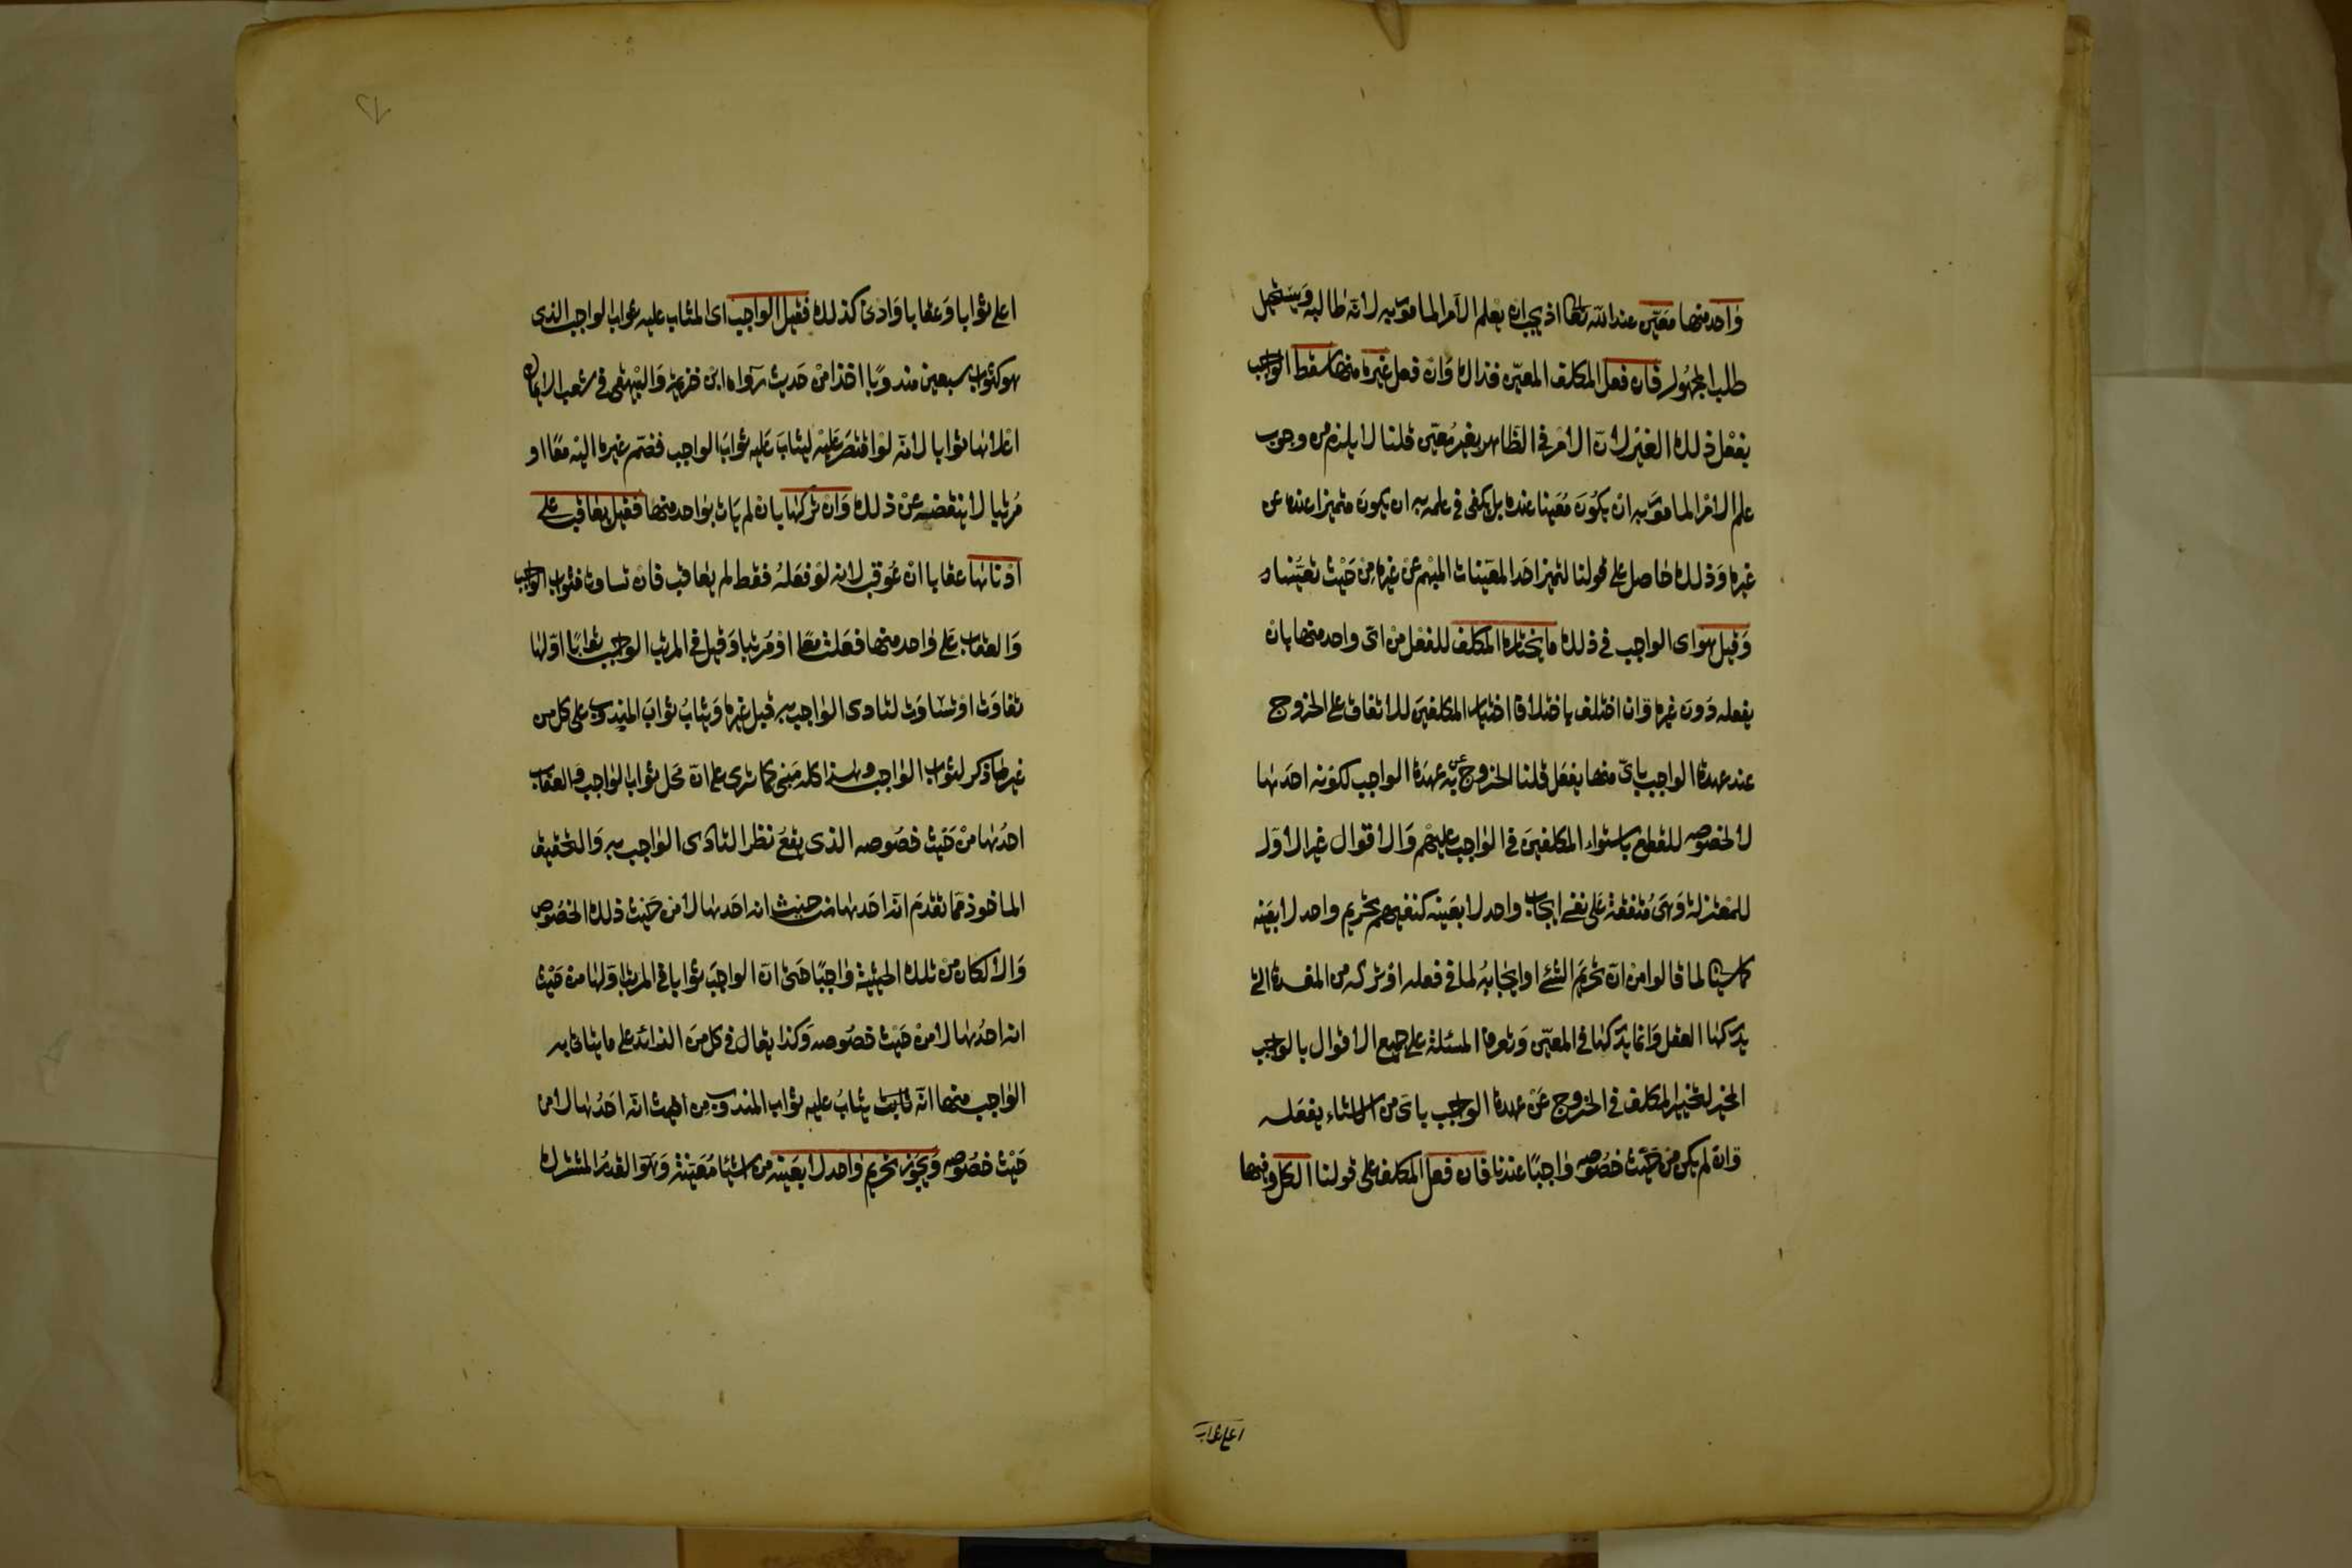 واحد منها معين عند الله تعالى اذ يجب ان يعلم الآمر المامور به لانه طالبه ويستحيل
طلب المجهول فان فعل المكلف المعين فذاك وان فعل غيره منها سقط الواجب
بفعل ذلك الغير لان الامر في الظاهر بغير معين قلنا لا يلزم من وجوب
علم الامر المامور به ان يكون معينا عنده بل يكفي في علمه به ان يكون متميزا عنده عن
غيره وذلك حاصل على قولنا لتميز احد المعينات المبهم عن غيره من حيث تعينها
وقيل هو اى الواجب في ذلك ما يختاره المكلف للفعل من اى واحد منها بان
يفعله دون غيره وان اختلف باختلاف اختيار المكلفين للاتفاق على الخروج
عند عهدة الواجب باى منها يفعل قلنا الخروج به عن عهدة الواجب لكونه احدها
لا لخصوصه للقطع باستواء المكلفين في الواجب عليهم والاقوال غير الاول
للمعتزلة وهى متفقة على نفى ايجاب واحد لا بعينه كنفيهم تحريم واحد لا بعينه
كما سياتى لما قالوا من ان تحريم الشئ او ايجابه لما في فعله او تركه من المفسدة التى
يدركها العقل وانما يدركها في المعين وتعرف المسئلة على جميع الاقوال بالواجب
المخير لتخيير المكلف في الخروج عن عهدة الواجب باى من الاشياء يفعله
وان لم يكن من حيث خصوصه واجبا عندنا فان فعل المكلف على قولنا الكل وفيها
اعلى ثوابا
اعلى ثوابا وعقابا وادنى كذلك فقيل الواجب اى المثاب عليه ثواب الواجب الذى
هو كثواب سبعين مندوبا اخذا من حديث رواه ابن خزيمة والبيهقى في شعب الايمان
اعلاها ثوابا لانه لو اقتصر عليه لیثاب عليه ثواب الواجب فضم غيره اليه معا او
مرتبا لا ينقصه عن ذلك وان تركها بان لم يات بواحد منها فقيل يعاقب على
ادناها عقابا ان عوقب لانه لو فعله فقط لم يعاقب فان تساوت فثواب الواجب
والعقاب على واحد منها فعلت معا او مرتبا وقيل في المرتب الواجب ثوابا اولها
تفاوتت او تساوت لتادى الواجب به قبل غيره ويثاب ثواب المندوب على كل من
غير ما ذكر لثواب الواجب وهذا كله مبنى كما ترى على ان محل ثواب الواجب والعقاب
احدها من حيث خصوصه الذى يقع نظر التادى الواجب به والتحقيق
الماخوذ مما تقدم انه احدها من حيث انه احدها لا من حيث ذلك الخصوص
والا لكان من تلك الحيثية واجبا حتى ان الواجب ثوابا في المرتب اولها من حيث
انه احدها لا من حيث خصوصه وكذا يقال في كل من الزائد على ما يتادى به
الواجب منها انه ثابت يثاب عليه ثواب المندوب من حيث انه احدها لا من
حيث خصوصه ويجوز تحريم واحد لا بعينه من اشيا معينة وهو القدر المشترك